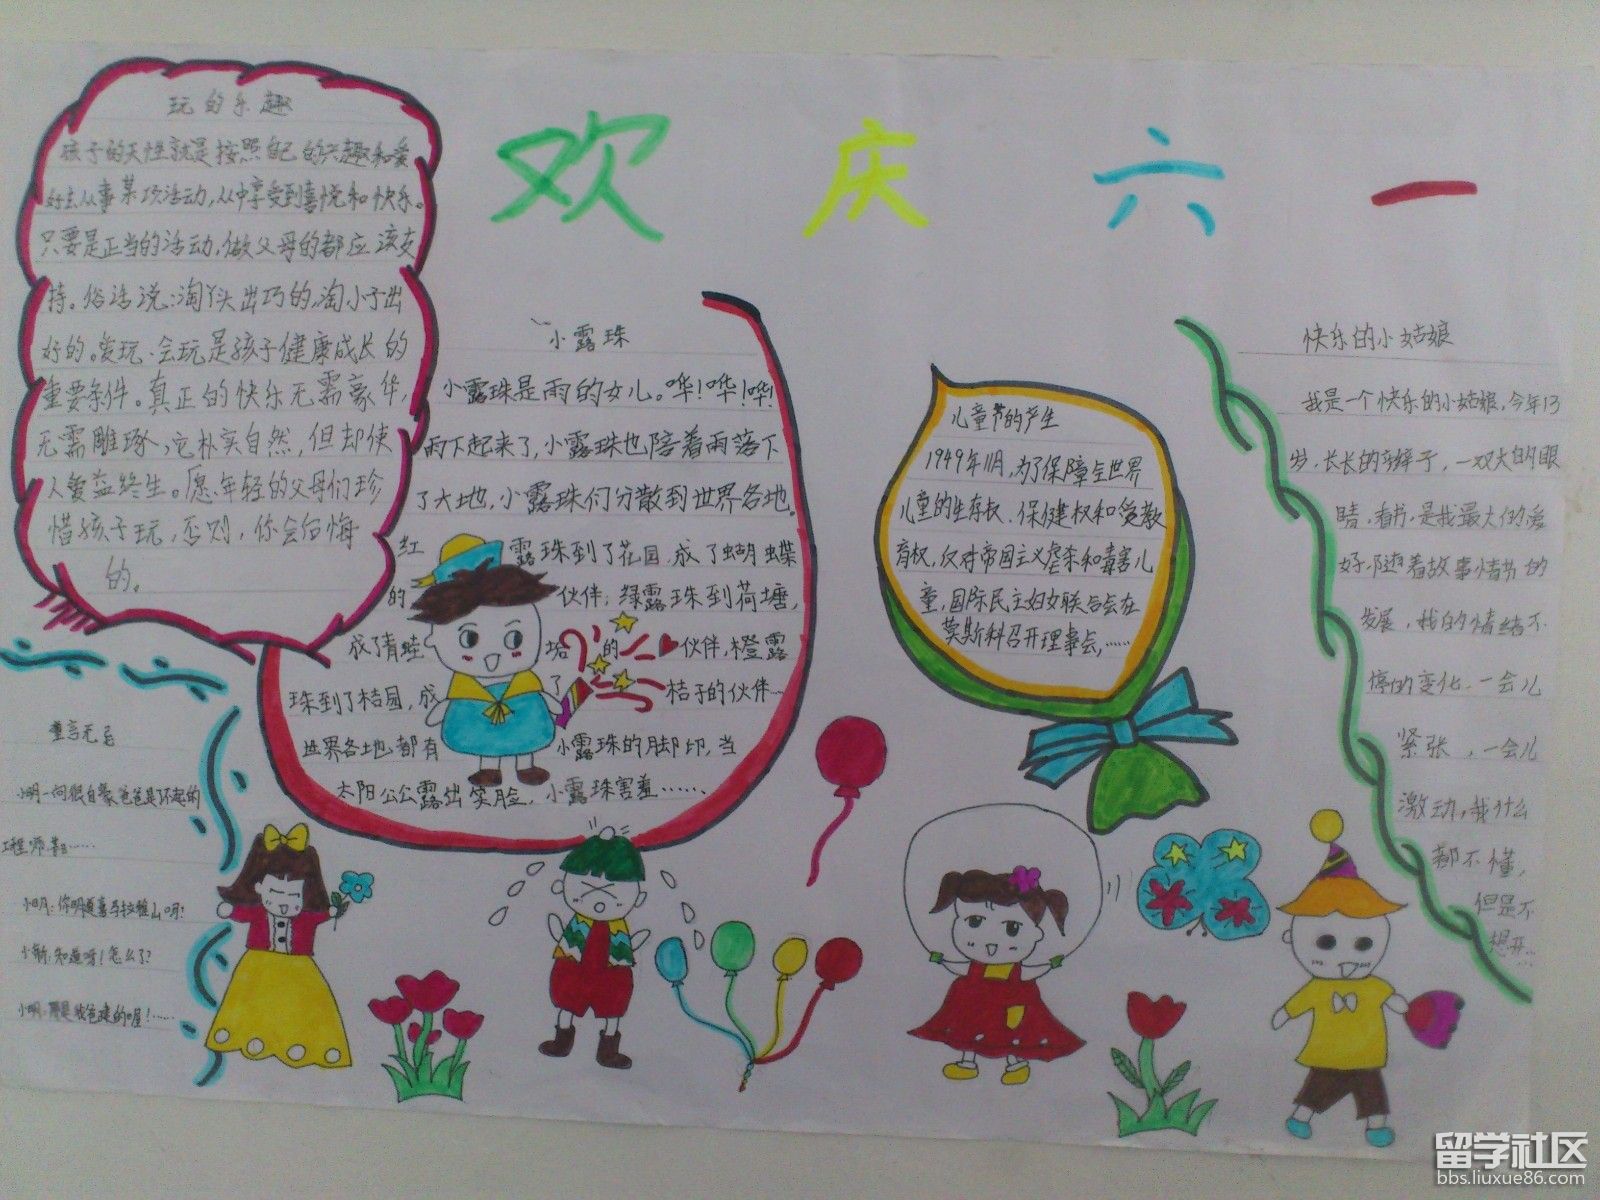 欢庆六一
玩的乐趣
孩子的天性就是按照自己的兴趣和爱
好去从事某项活动,从中享受到喜悦和快乐。
只要是正当的活动,做父母的都应该支
持。俗话说:淘丫头出巧的,淘小子出
好的。爱玩、会玩是孩子健康成长的
重要条件。真正的快乐无需豪华,
无需雕琢,它朴实自然,但却使
人受益终生。愿年轻的父母们珍
惜孩子玩,否则,你会后悔
的。
小露珠
小露珠是雨的女儿。哗!哗!哗!
雨下起来了,小露珠也陪着雨落下
了大地,小露珠们分散到世界各地.
红露珠到了花园,成了蝴蝶
的伙伴;绿露珠到荷塘,
成了青蛙的伙伴,橙露
珠到了桔园,成了桔子的伙伴…
世界各地都有小露珠的脚印,当
太阳公公露出笑脸,小露珠害羞……
儿童节的产生
1949年11月,为了保障全世界
儿童的生存权、保健权和受教
育权,反对帝国主义虐杀和毒害儿
童,国际民主妇女联合会在
莫斯科召开理事会,……
快乐的小姑娘
我是一个快乐的小姑娘,今年13
岁,长长的辫子,一双大的眼
睛,看书,是我最大的爱
好,随着故事情节的
发展,我的情绪不
停的变化,一会儿
紧张,一会儿
激动,我什么
都不懂,
但是不
想开…
童言无忌
小明一向很自豪爸爸是了不起的
工程师,
小明:你明喜马拉雅山吗?
小新:知道呀!怎么了?
小明:那是我爸建的喔!……
留学社区
bbs.liuxue86.com